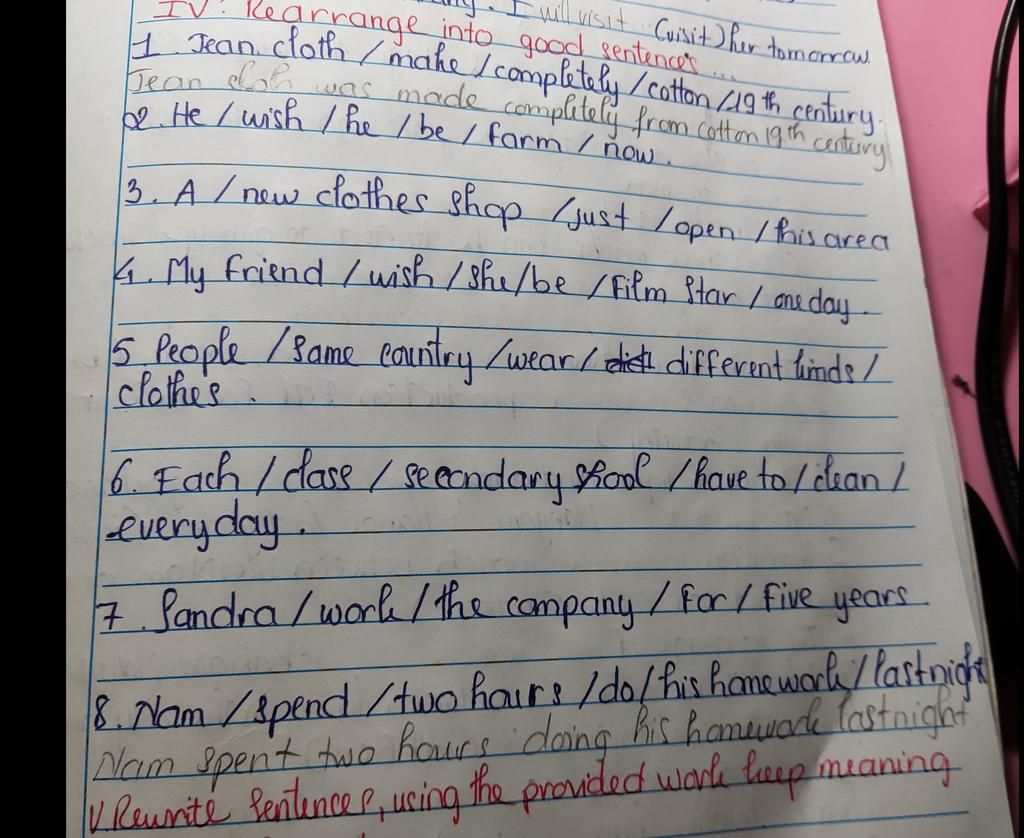 I will visit (visit) her tomorrow.
IV. Rearrange into good sentences...
1. Jean cloth / make / completely / cotton / 19th century.
Jean cloh was made completely from cotton 19th century
2. He / wish / he / be / farm / now.
3. A / new clothes shop / just / open / this area
4. My friend / wish / she / be / film star / one day.
5 People / same country / wear / different kinds /
clothes.
6. Each / class / secondary shool / have to / clean /
everyday.
7. Sandra / work / the company / for / five years
8. Nam / spend / two hours / do / his homework / last night
Nam spent two hours doing his homework last night
V. Rewrite sentences, using the provided work keep meaning